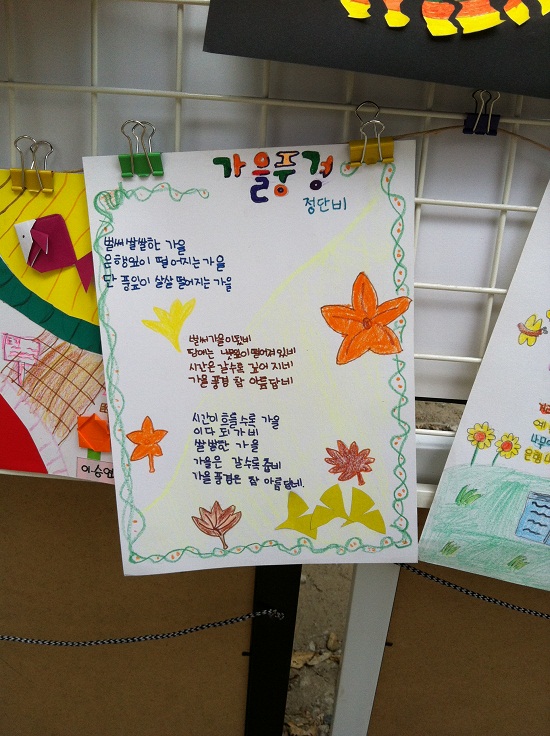 가을풍경
정단비
벌써 쌀쌀한 가을
은행잎이 떨어지는 가을
단풍잎이 살살 떨어지는 가을
벌써 가을이 됬네
땅에는 나뭇잎이 떨어져 있네
시간은 갈수록 깊어 지네
가을 풍경 참 아름 답네
시간이 흐를 수록 가을
이 다 되 가 네
쌀쌀한 가을
가을은 갈수록 춥네
가을 풍경은 참 아름 답네.
이승연